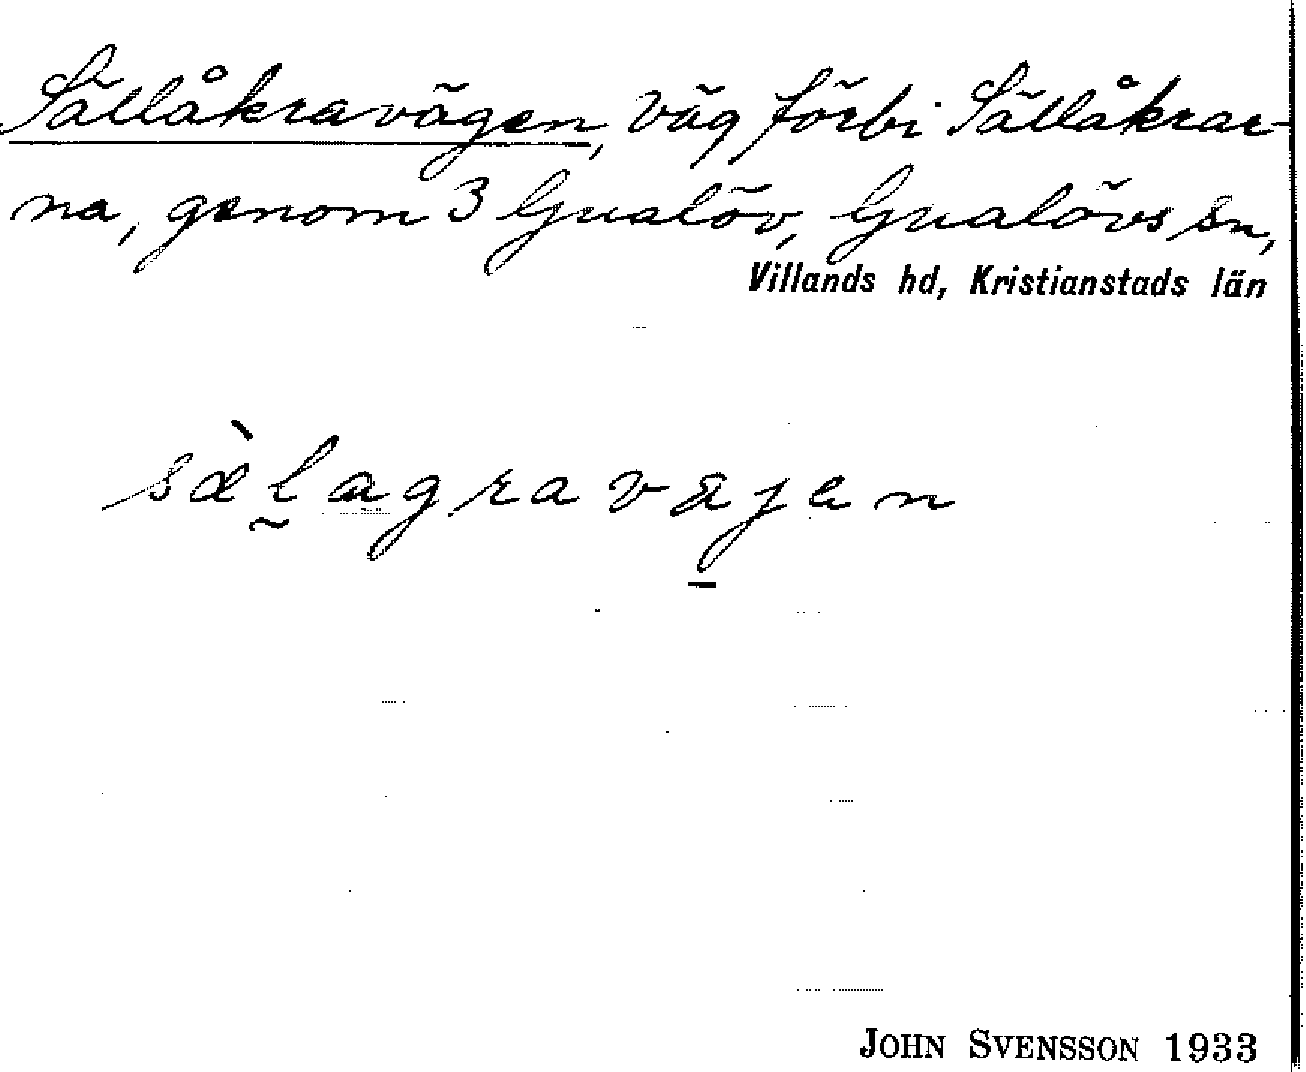 Sällåkravägen, väg förbi Sällåkrar-
na, genom 3 Gualöv, Gualövs sn,
Villands hd, Kristianstads län
sæ̀l̰agravæjen
JOHN SVENSSON 1933